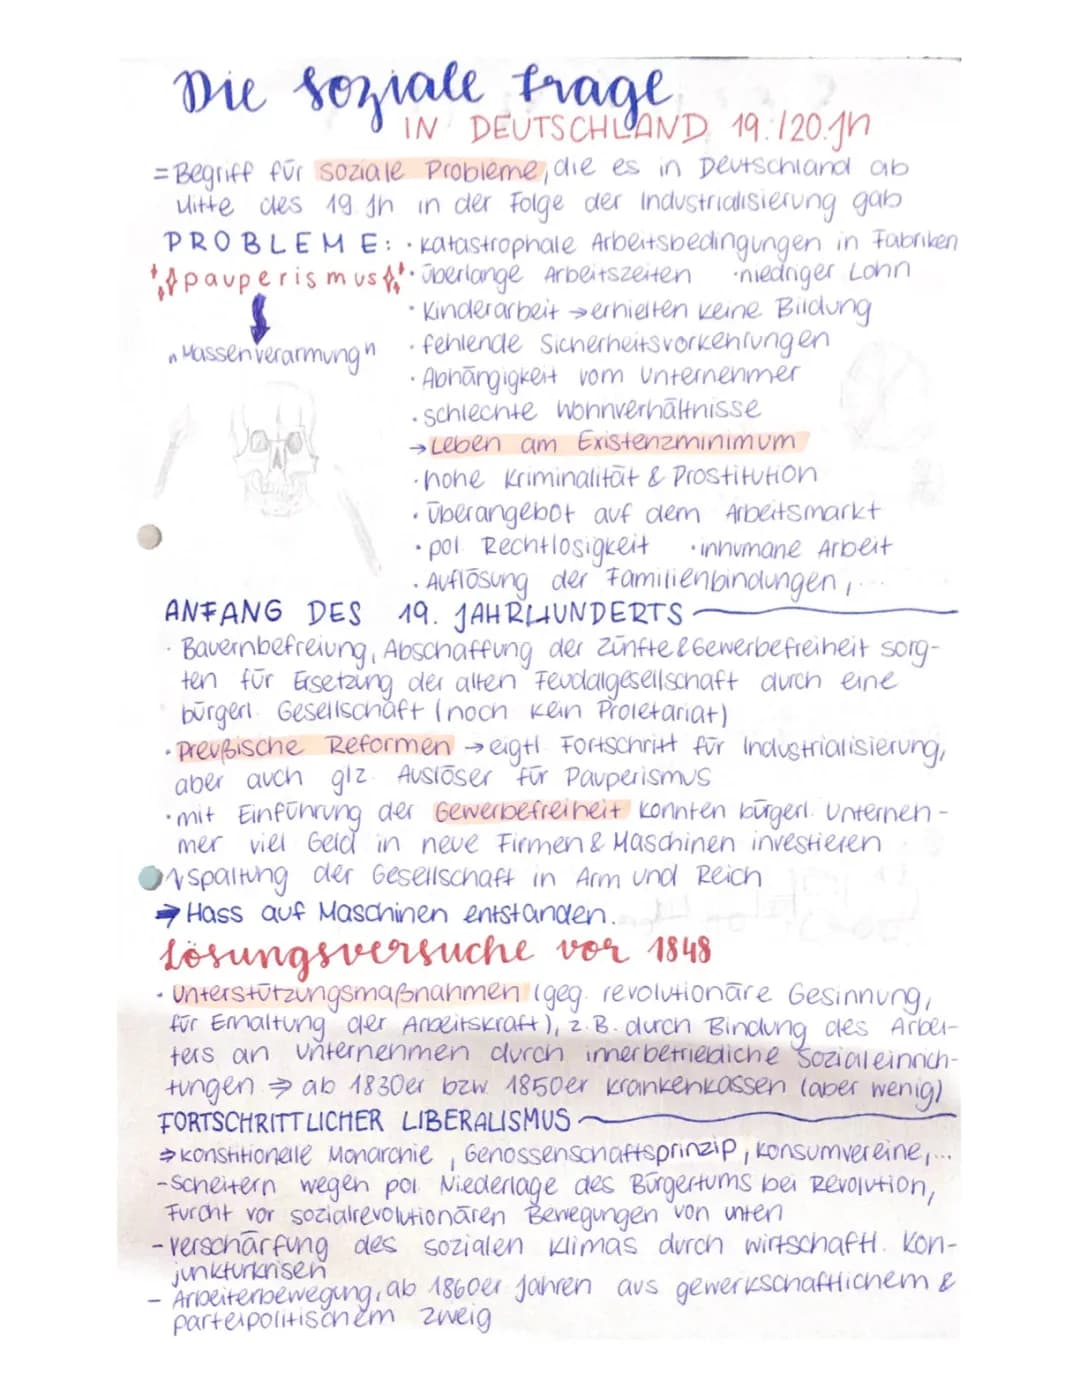 Die soziale Frage
IN DEUTSCHLAND 19./20.Jh
= Begriff für soziale Probleme, die es in Deutschland ab
Mitte des 19. Jh in der Folge der Industrialisierung gab
PROBLEME: · katastrophale Arbeitsbedingungen in Fabriken
pauperismus · überlange Arbeitszeiten · niedriger Lohn
· Kinderarbeit → erhielten keine Bildung
"Massenverarmung" · fehlende Sicherheitsvorkehrungen
· Abhängigkeit vom Unternehmer
· schlechte Wohnverhältnisse
→ Leben am Existenzminimum
· hohe Kriminalität & Prostitution
· Überangebot auf dem Arbeitsmarkt
· pol. Rechtlosigkeit · inhumane Arbeit
· Auflösung der Familienbindungen,...
ANFANG DES 19. JAHRHUNDERTS
· Bauernbefreiung, Abschaffung der Zünfte & Gewerbefreiheit sorg-
ten für Ersetzung der alten Feudalgesellschaft durch eine
bürgerl. Gesellschaft (noch kein Proletariat)
· Preußische Reformen → eigtl. Fortschritt für Industrialisierung,
aber auch glz. Auslöser für Pauperismus
· mit Einführung der Gewerbefreiheit konnten bürgerl. Unterneh-
mer viel Geld in neue Firmen & Maschinen investieren
spaltung der Gesellschaft in Arm und Reich
→ Hass auf Maschinen entstanden.
Lösungsversuche vor 1848
· Unterstützungsmaßnahmen (geg. revolutionäre Gesinnung,
für Erhaltung der Arbeitskraft), z.B. durch Bindung des Arbei-
ters an Unternehmen durch innerbetriebliche Sozialeinrich-
tungen → ab 1830er bzw. 1850er Krankenkassen (aber wenig)
FORTSCHRITTLICHER LIBERALISMUS
→ konstitionelle Monarchie, Genossenschaftsprinzip, Konsumvereine,...
- Scheitern wegen pol. Niederlage des Bürgertums bei Revolution,
Furcht vor sozialrevolutionären Bewegungen von unten
- Verschärfung des sozialen Klimas durch wirtschaftl. Kon-
junkturkrisen
- Arbeiterbewegung, ab 1860er Jahren aus gewerkschaftlichem &
parteipolitischem Zweig